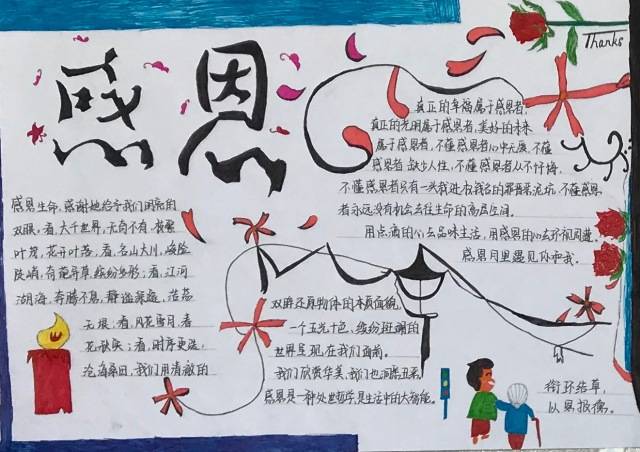 感恩
Thanks
真正的幸福属于感恩者,
真正的光明属于感恩者,美好的未来
属于感恩者,不懂感恩者心中无展,不懂
感恩者缺少人性,不懂感恩者从不忏悔,
不懂感恩者只有一次我进
不懂感恩
者永远没有机会去往生命的高层空间。
用点滴的心去品味生活,用感恩的心去环视周遭,
感恩月里遇见你和我。
感恩生命,感谢她给予我们明亮的
双眼,看,大千世界,无奇不有,枝繁
叶茂,花开叶落,看,名山大川,峰险
陡峭,奇葩异草,缤纷多彩,看,江河
湖海,奔腾不息,静谧深邃,浩荡
无垠,看,风花雪月,春
花秋实,看,时序更迭,
沧海桑田,我们用清澈的
双眸还原物体的本质面貌,
一个五光十色,缤纷斑斓的
世界呈现在我们面前。
我们欣赏华美,我们也洞察丑恶,
感恩是一种处世哲学,是生活中的大智慧。
衔环结草,
以恩报德。